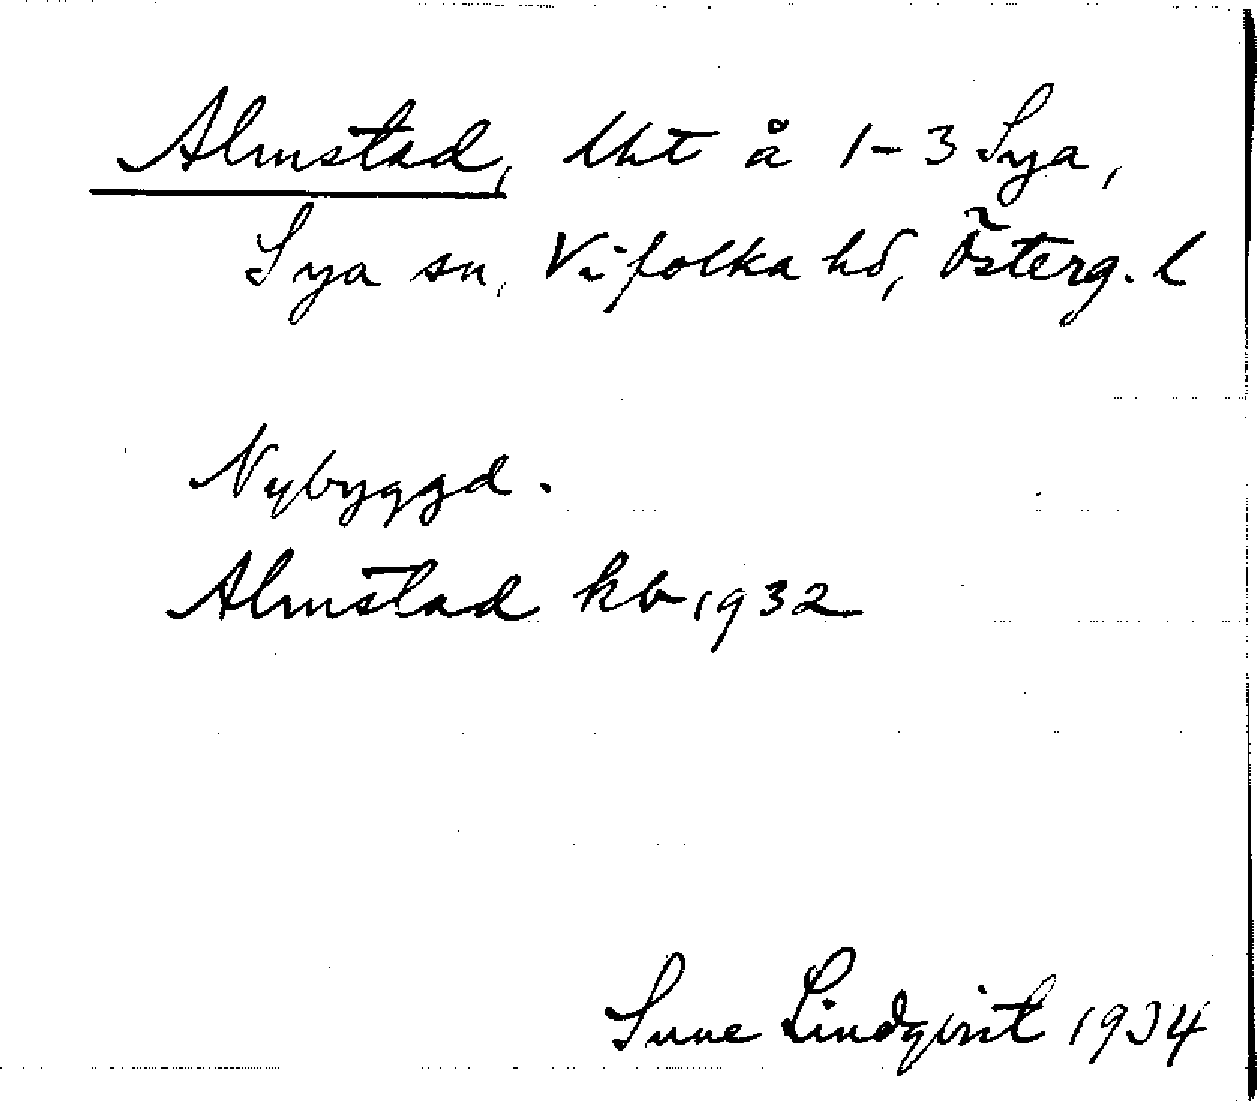 Almstad, lht å 1-3 Sya,
Sya sn, Vifolka hd, Österg. l
Nybyggd.
Almstad kb 1932
Sune Lindqvist 1934